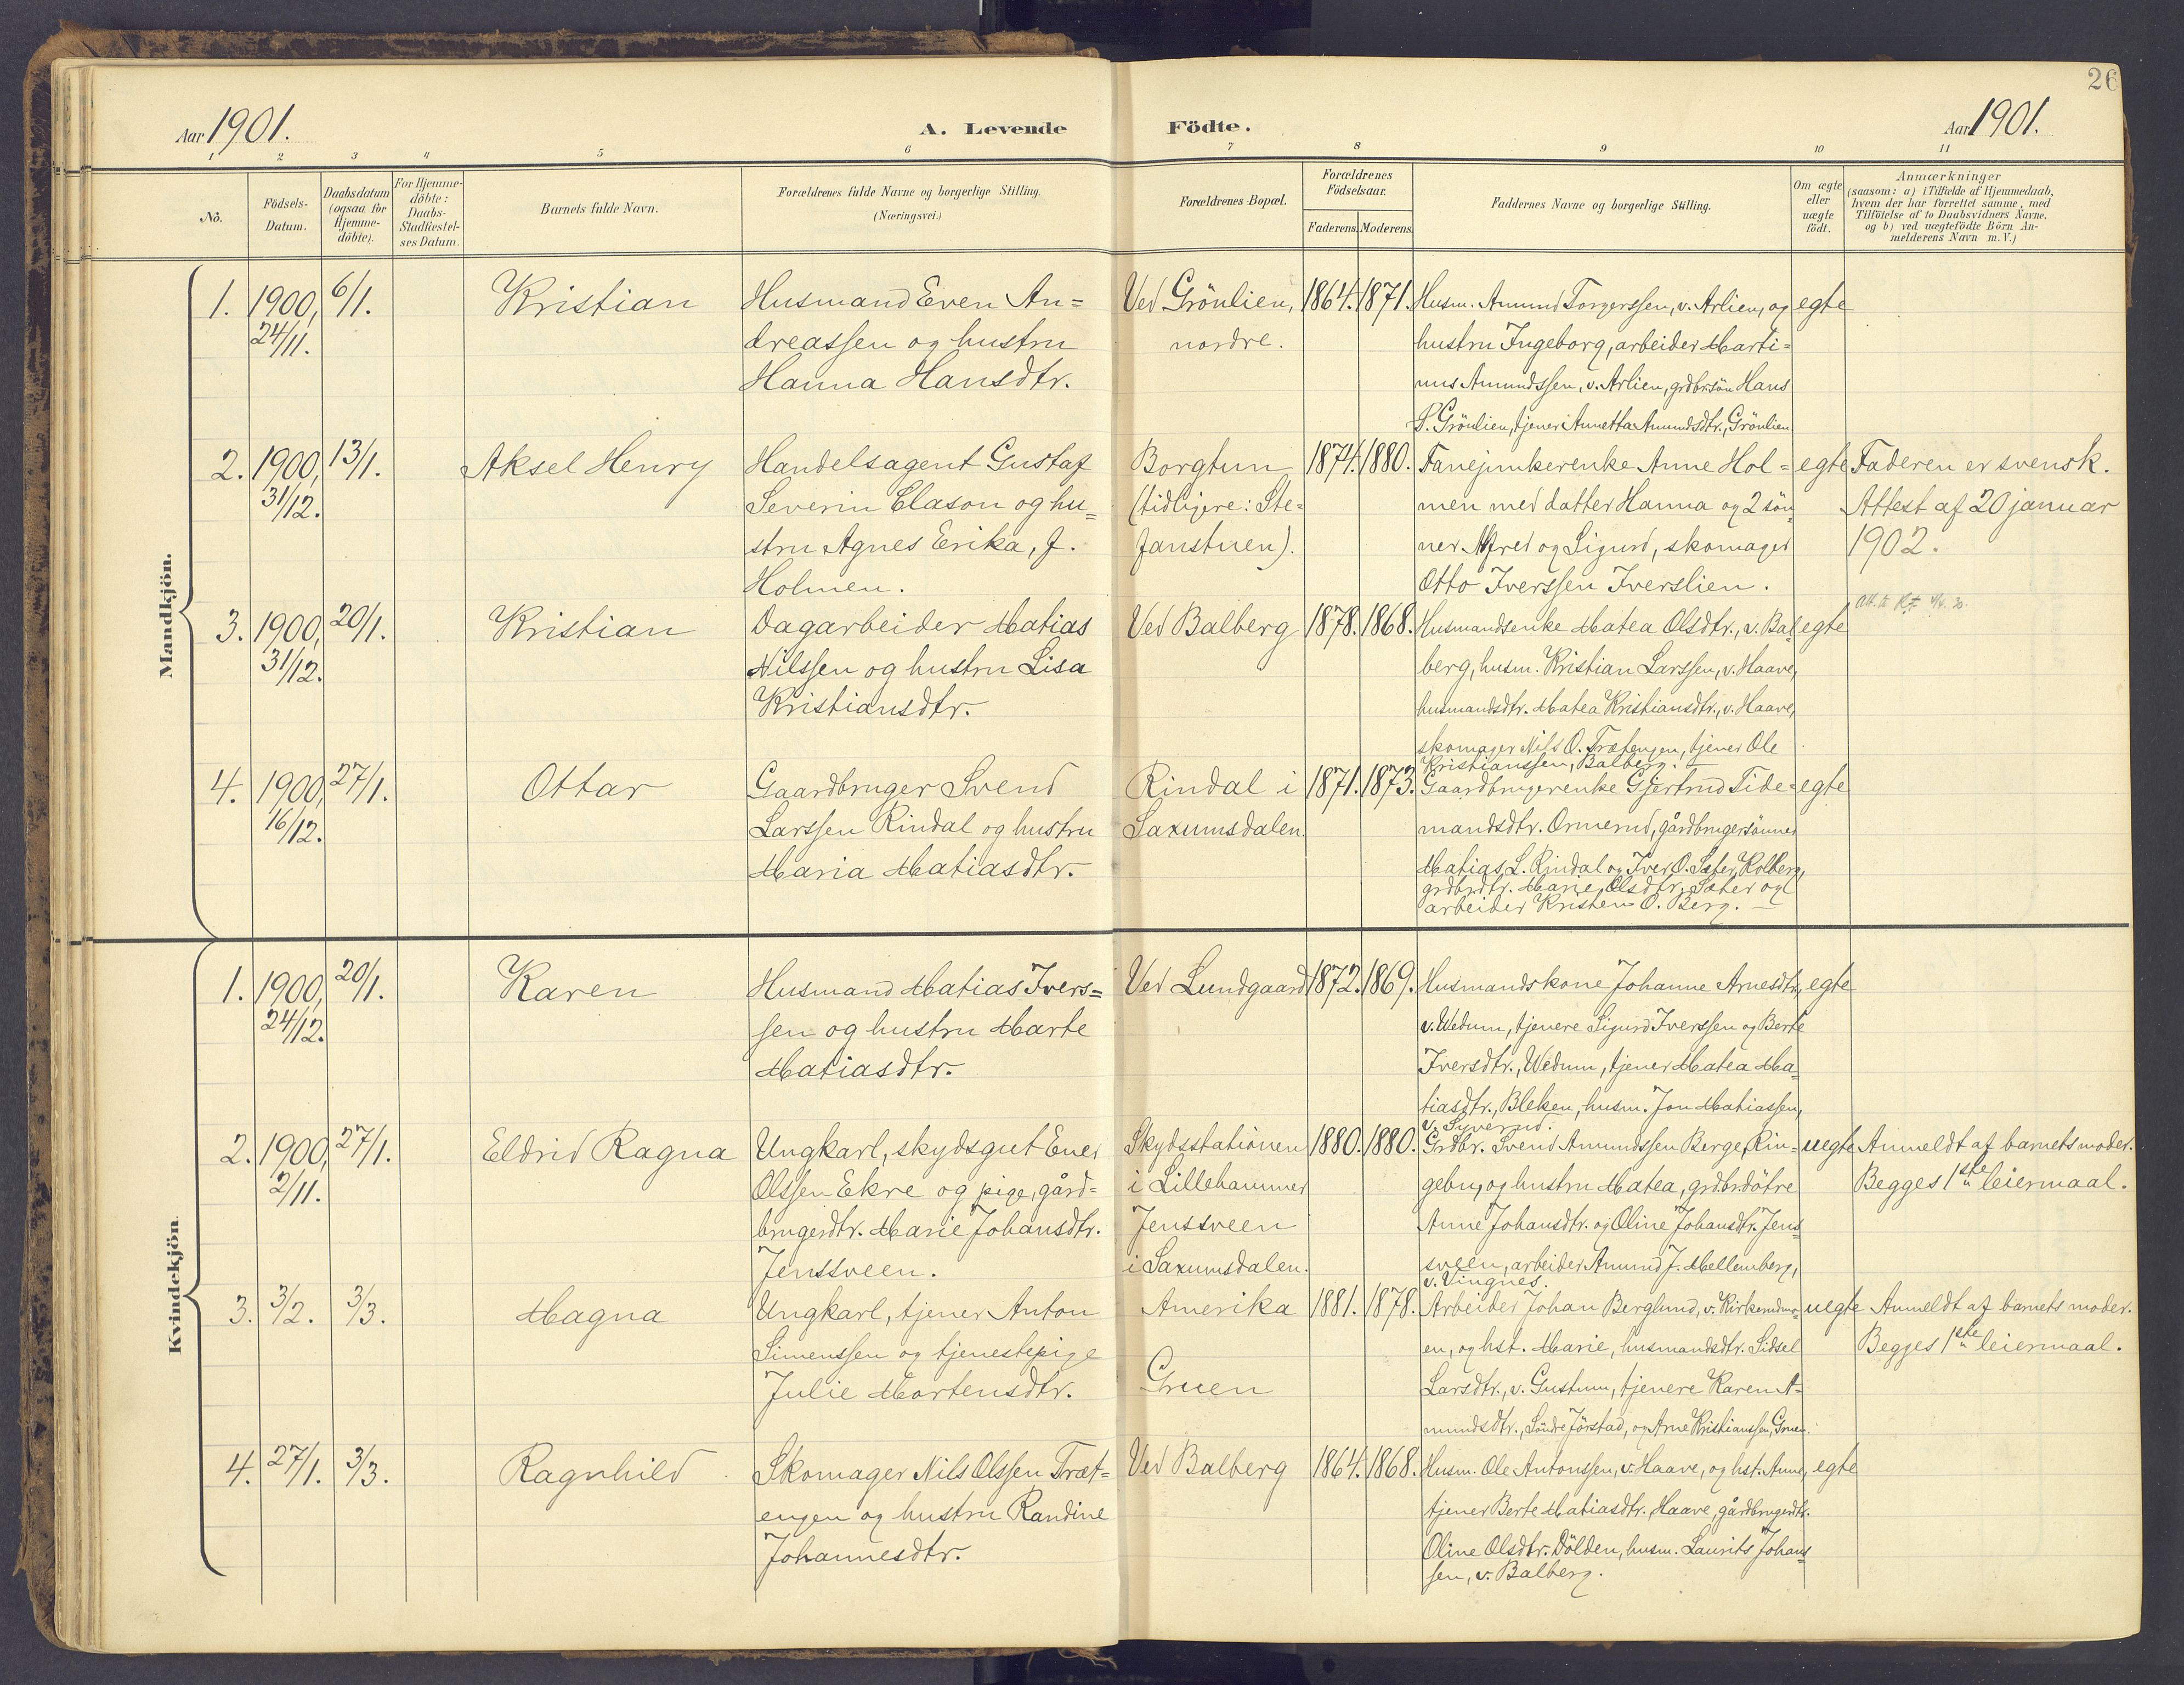 26
Aar 1901.
A. Levende Födte.
Aar 1901.
1 2 3 4 5 6 7 8 9 10 11
No.
Födsels-Datum.
Daabsdatum (ogsaa for Hjemme-döbte).
For Hjemme-döbte: Daabs-Stadfæstel-ses Datum.
Barnets fulde Navn.
Forældrenes fulde Navne og borgerlige Stilling.
(Næringsvei.)
Forældrenes Bopæl.
Forældrenes Födselsaar.
Faderens. Moderens.
Faddernes Navne og borgerlige Stilling.
Om ægte eller uægte födt.
Anmærkninger
(saasom: a) i Tilfælde af Hjemmedaab,
hvem der har forrettet samme, med
Tilföielse af to Daabsvidners Navne.
og b) ved uægtefödte Börn An-
melderens Navn m. V.)
Mandkjön.
1. 1900, 24/11. 6/1. Kristian
Husmand Even An=
dreassen og hustru
Hanna Hansdtr.
Ved Grönlien,
nordre.
1864. 1871.
Husm. Amund Torgerssen, v. Arlien, og
hustru Ingeborg, arbeider Marti=
nus Amundssen, v. Arlien, grdbr.sön Hans
P. Grönlien, tjener Annetta Amundsdtr., Grönlien
egte
2. 1900, 31/12. 13/1. Aksel Henry
Handelsagent Gustaf
Severin Clason og hu=
stru Agnes Erika, f.
Holmen.
Borgtun
(tidligere: Ste=
fanstuen).
1874. 1880.
Fanejunkerenke Anne Hol=
men med datter Hanna og 2 sön
ner Alfred og Sigurd, skomager
Otto Iverssen Iverslien.
egte
Faderen er svensk.
Attest af 20 januar
1902.
3. 1900, 31/12. 20/1. Kristian
Dagarbeider Matias
Nilssen og hustru Lisa
Kristiansdtr.
Ved Balberg
1878. 1868.
Husmandsenke Matea Olsdtr., v. Bal=
berg, husm. Kristian Larssen, v. Haave,
husmandsdtr. Matea Kristiansdtr., v. Haave,
skomager Nils O. Trætengen, tjener Ole
Kristianssen, Balberg.
egte
4. 1900, 16/12. 27/1. Ottar
Gaardbruger Svend
Larssen Rindal og hustru
Maria Matiasdtr.
Rindal i
Saxumsdalen.
1871. 1873.
Gaardbrugerenke Gjertrud Tide=
mandsdtr. Ormerud, gårdbrugersönner
Matias L. Rindal og Iver O. Sæter, Kolberg,
grdbr.dtr. Marie Olsdtr. Sæter og
arbeider Kristen O. Berg.
egte
Kvindekjön.
1. 1900, 24/12. 20/1. Karen
Husmand Matias Ivers=
sen og hustru Marte
Matiasdtr.
Ved Lundgaard
1872. 1869.
Husmandskone Johanne Arnesdtr,
v. Wedum, tjenere Sigurd Iverssen og Berte
Iversdtr., Wedum, tjener Matea Ma=
tiasdtr., Bleken, husm. Jon Matiassen,
v. Syverud.
egte
2. 1900, 2/11. 27/1. Eldrid Ragna
Ungkarl, skydsgut Ener
Olssen Ekre og pige, gård=
brugerdtr. Marie Johansdtr.
Jenssveen.
Skydsstationen
i Lillehammer
Jenssveen
i Saxumsdalen.
1880. 1880.
Grdbr. Svend Amundssen Berge, Rin=
gebu, og hustru Matea, grdbr.dötre
Anne Johansdtr. og Oline Johansdtr. Jens=
sveen, arbeider Amund J. Mellemberg,
v. Vingnes.
uegte
Anmeldt af barnets moder.
Begges 1ste leiermaal.
3. 3/2. 3/3. Magna
Ungkarl, tjener Anton
Simenssen og tjenestepige
Julie Mortensdtr.
Amerika
Gruen
1881. 1878.
Arbeider Johan Berglund, v. Kirkerudmo=
en, og hst. Marie, husmandsdtr. Sidsel
Larsdtr., v. Gustum, tjenere Karen A=
mundsdtr., Söndre Jörstad, og Arne Kristianssen, Gruen.
uegte
Anmeldt af barnets moder.
Begges 1ste leiermaal.
4. 27/1. 3/3. Ragnhild
Skomager Nils Olssen Træt=
engen og hustru Randine
Johannesdtr.
Ved Balberg
1864. 1868.
Husm. Ole Antonssen, v. Haave, og hst. Anne,
tjener Berte Matiasdtr. Haave, gårdbrugerdtr.
Oline Olsdtr. Dölden, husm. Laurits Johans=
sen, v. Balberg.
egte